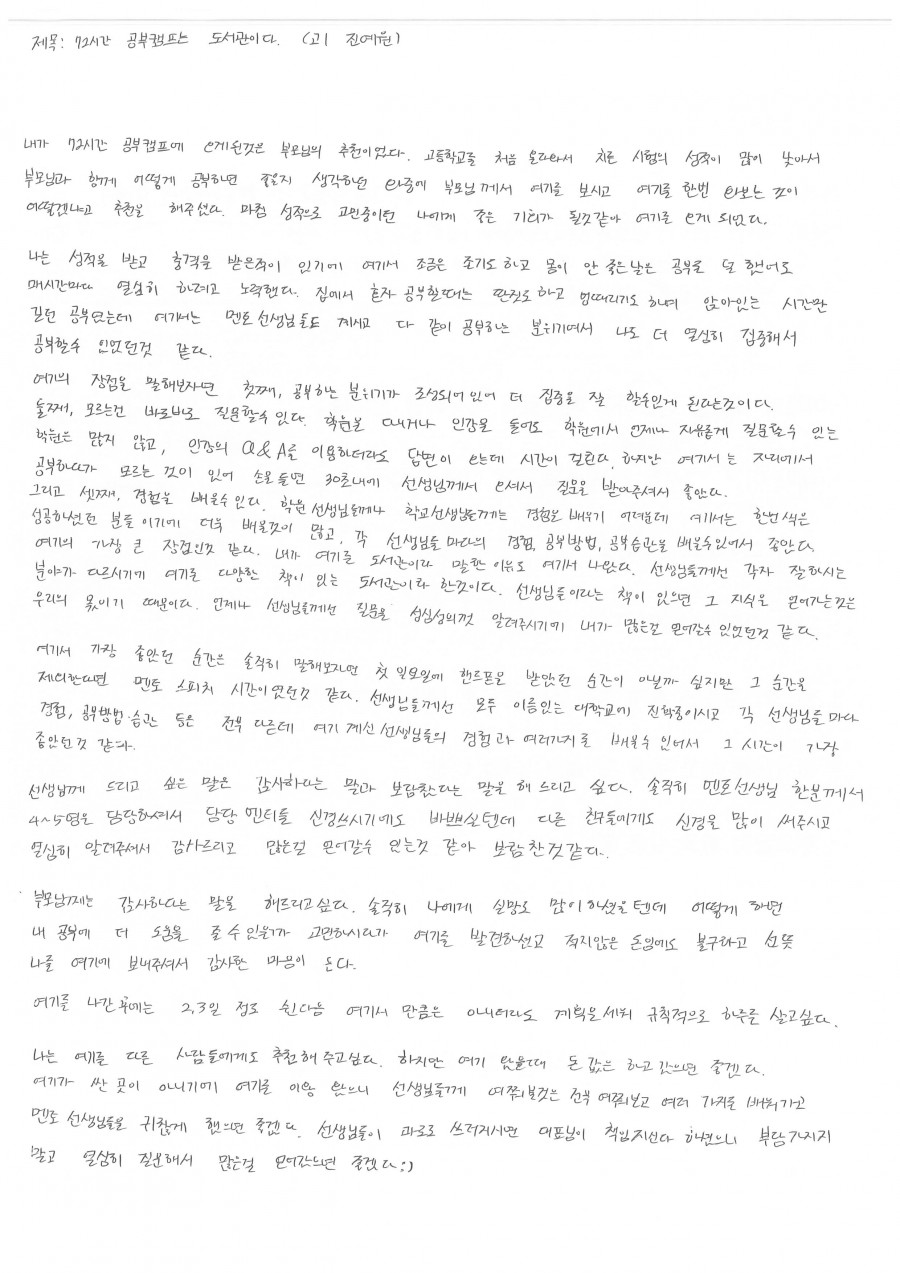 제목: 72시간 공부캠프는 도서관이다. (고1 진예원)
내가 72시간 공부캠프에 오게된것은 부모님의 추천이었다. 고등학교를 처음 올라와서 치른 시험의 성적이 많이 낮아서
부모님과 함께 어떻게 공부하면 좋을지 생각하던 와중에 부모님께서 여기를 보시고 여기를 한번 와보는 것이
어떻겠냐고 추천을 해주셨다. 마침 성적으로 고민중이던 나에게 좋은 기회가 될것같아 여기를 오게 되었다.
나는 성적을 받고 충격을 받은적이 있기에 여기서 조금은 졸기도하고 몸이 안 좋은날은 공부를 덜 했어도
매시간마다 열심히 하려고 노력했다. 집에서 혼자 공부할때는 딴짓도하고 멍때리기도 하며 앉아있는 시간만
길던 공부였는데 여기서는 멘토선생님들도 계시고 다 같이 공부하는 분위기여서 나도 더 열심히 집중해서
공부할수 있었던것 같다.
여기의 장점을 말해보자면 첫째, 공부하는 분위기가 조성되어있어 더 집중을 잘 할수있게 된다는것이다.
둘째, 모르는건 바로바로 질문할수 있다. 학원을 다니거나 인강을 들어도 학원에서 언제나 자유롭게 질문할수 있는
학원은 많지 않고, 인강의 Q&A를 이용하더라도 답변이 오는데 시간이 걸린다. 하지만 여기서는 자리에서
공부하다가 모르는 것이 있어 손을 들면 30초내에 선생님께서 오셔서 질문을 받아주셔서 좋았다.
그리고 셋째, 경험을 배울수 있다. 학원 선생님들께나 학교선생님들께는 경험을 배우기 어려운데 여기서는 한번씩은
성공하셨던 분들 이기에 더욱 배울것이 많고, 각 선생님들 마다의 경험, 공부방법, 공부습관을 배울수있어서 좋았다.
여기의 가장 큰 장점인것 같다. 내가 여기를 도서관이라 말한 이유도 여기서 나왔다. 선생님들께선 각자 잘하시는
분야가 다르시기에 여기를 다양한 책이 있는 도서관이라 한것이다. 선생님들이라는 책이 있으면 그 지식을 얻어가는것은
우리의 몫이기 때문이다. 언제나 선생님들께선 질문을 성심성의껏 알려주시기에 내가 많은걸 얻어갈수 있었던것 같다.
여기서 가장 좋았던 순간은 솔직히 말해보자면 첫 일요일에 핸드폰을 받았던 순간이 아닐까 싶지만 그 순간을
제외한다면 멘토 스피치 시간이였던것 같다. 선생님들께선 모두 이름있는 대학교에 진학중이시고 각 선생님들 마다
경험, 공부방법·습관 등은 전부 다른데 여기 계신 선생님들의 경험과 여러가지를 배울수 있어서 그 시간이 가장
좋았던것 같다.
선생님께 드리고 싶은 말은 감사하다는 말과 보람찼다는 말을 해 드리고 싶다. 솔직히 멘토선생님 한분께서
4~5명을 담당하셔서 담당 멘티들 신경쓰시기에도 바쁘실텐데 다른 친구들에게도 신경을 많이 써주시고
열심히 알려주셔서 감사드리고 많은걸 얻어갈수 있는것 같아 보람찬것같다.
부모님께는 감사하다는 말을 해드리고싶다. 솔직히 나에게 실망도 많이하셨을텐데 어떻게 하면
내 공부에 더 도움을 줄 수 있을까 고민하시다가 여기를 발견하셨고 적지않은 돈임에도 불구하고 선뜻
나를 여기에 보내주셔서 감사한 마음이 든다.
여기를 나간후에는 2,3일 정도 쉰다음 여기서 만큼은 아니더라도 계획을세워 규칙적으로 하루를 살고싶다.
나는 여기를 다른 사람들에게도 추천해 주고싶다. 하지만 여기 왔을때 돈값은 하고갔으면 좋겠다.
여기가 싼 곳이 아니기에 여기를 이왕 왔으니 선생님들께 여쭤볼것은 전부 여쭤보고 여러 가지를 배워가고
멘토선생님들을 귀찮게 했으면 좋겠다. 선생님들이 과로로 쓰러지시면 대표님이 책임지신다 하셨으니 부담가지지
말고 열심히 질문해서 많은걸 얻어갔으면 좋겠다:)